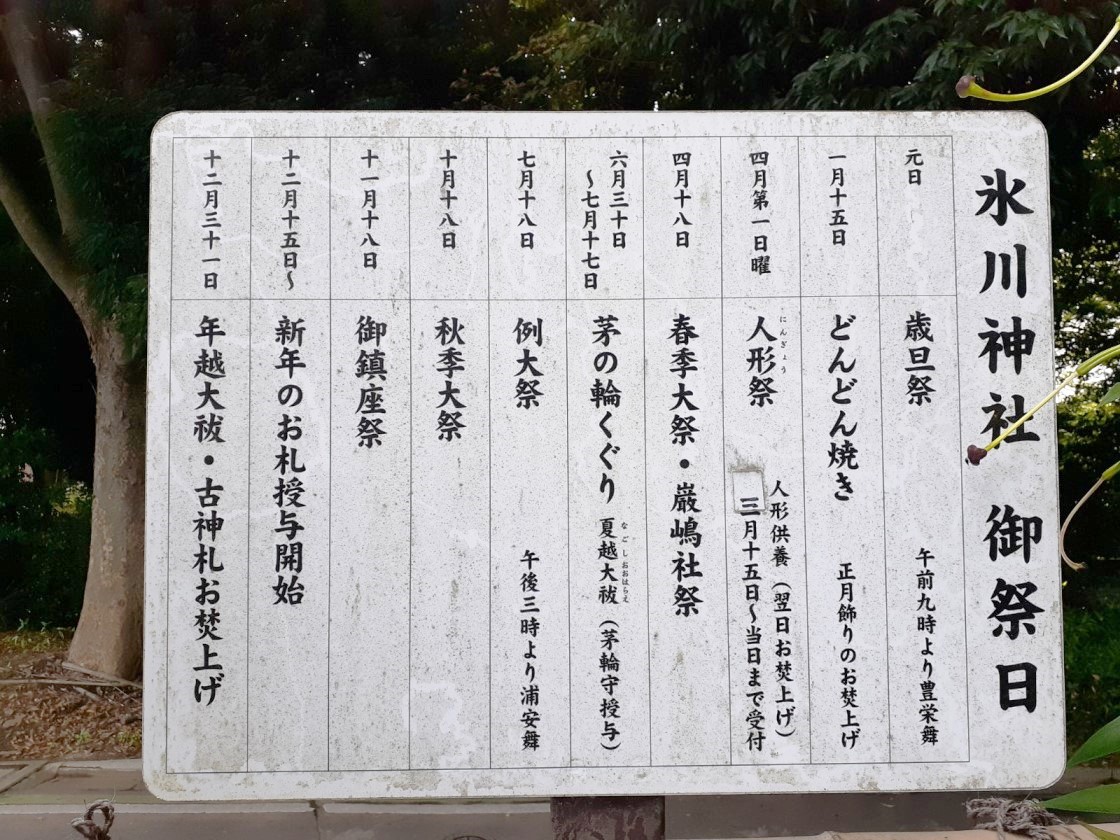 氷川神社 御祭日
元日
歳旦祭
午前九時より豊栄舞
一月十五日
どんどん焼き
正月飾りのお焚上げ
四月第一日曜
にんぎょう
人形祭
人形供養(翌日お焚上げ)
三月十五日〜当日まで受付
四月十八日
春季大祭・厳嶋社祭
六月三十日
〜七月十七日
茅の輪くぐり
なごしおおはらえ
夏越大祓(茅輪守授与)
七月十八日
例大祭
午後三時より浦安舞
十月十八日
秋季大祭
十一月十八日
御鎮座祭
十二月十五日〜
新年のお札授与開始
十二月三十一日
年越大祓・古神札お焚上げ